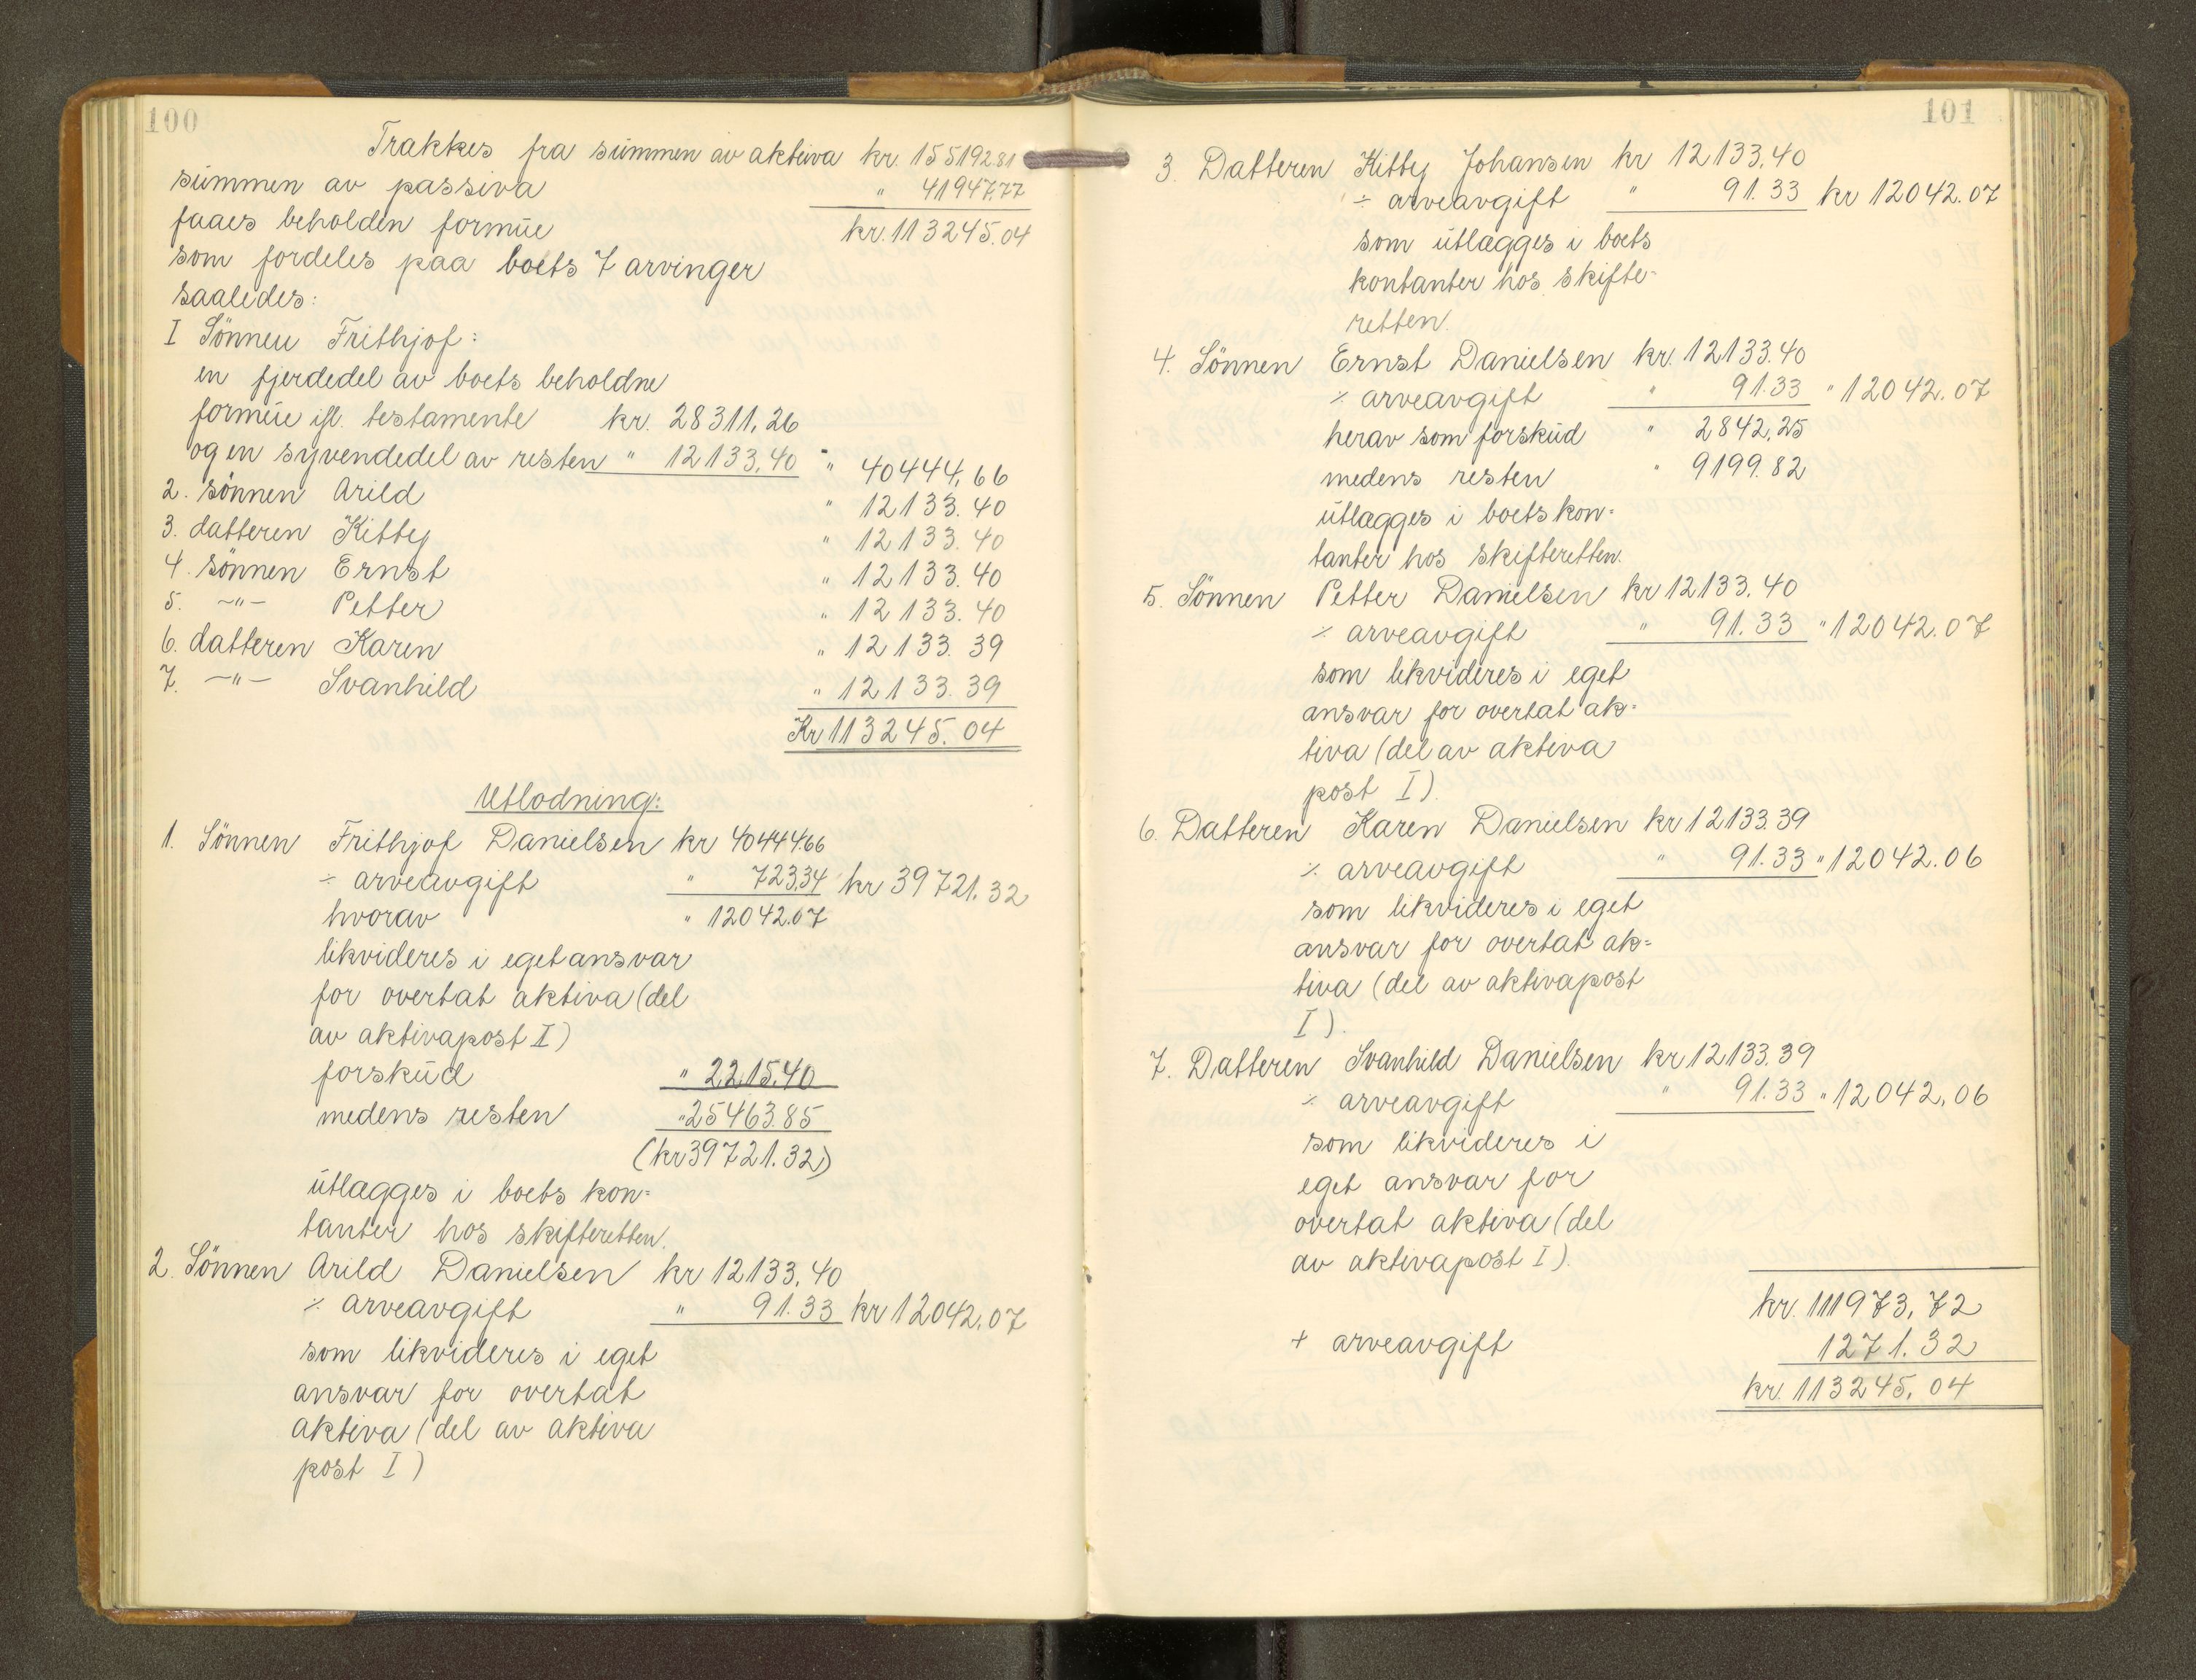 100
Trakkes fra summen av aktiva kr. 155192.81
summen av passiva " 41947,77
faaes beholden formue kr. 113245.04
som fordeles paa boets 7 arvinger
saaledes:
I Sönnen Frithjof:
en fjerdedel av boets beholdne
formue ifl. testamente kr. 28311,26
og en syvendedel av resten " 12133,40 " 40444,66
2. sönnen Arild " 12133.40
3. datteren Kitty " 12133.40
4. sönnen Ernst " 12133.40
5. -"- Petter " 12133.40
6. datteren Karen " 12133.39
7. -"- Svanhild " 12133.39
Kr 113245.04
Utlodning:
1. Sönnen Frithjof Danielsen kr 40444.66
÷ arveavgift " 723,34 kr 39721.32
hvorav " 12042.07
likvideres i eget ansvar
for overtat aktiva (del
av aktivapost I)
forskud " 2215,40
medens resten " 25463.85
(kr 39721.32)
utlægges i boets kon=
tanter hos skifteretten.
2. Sönnen Arild Danielsen kr 12133,40
÷ arveavgift " 91.33 kr 12042,07
som likvideres i eget
ansvar for overtat
aktiva (del av aktiva
post I)
101
3. Datteren Kitty Johansen kr 12133,40
÷ arveavgift " 91.33 kr 12042.07
som utlægges i boets
kontanter hos skifte-
retten.
4. Sönnen Ernst Danielsen kr. 12133.40
÷ arveavgift " 91.33 " 12042.07
herav som forskud " 2842,25
medens resten " 9199.82
utlægges i boets kon=
tanter hos skifteretten.
5. Sönnen Petter Danielsen kr 12133,40
÷ arveavgift " 91.33 " 12042.07
som likvideres i eget
ansvar for overtat ak=
tiva (del av aktiva
post I).
6. Datteren Karen Danielsen kr 12133.39
÷ arveavgift " 91.33 " 12042.06
som likvideres i eget
ansvar for overtat ak=
tiva (del av aktivapost
I).
7. Datteren Svanhild Danielsen kr 12133.39
÷ arveavgift " 91.33 " 12042,06
som likvideres i
eget ansvar for
overtat aktiva (del
av aktivapost I).
kr. 111973,72
+ arveavgift 1271.32
kr. 113245,04